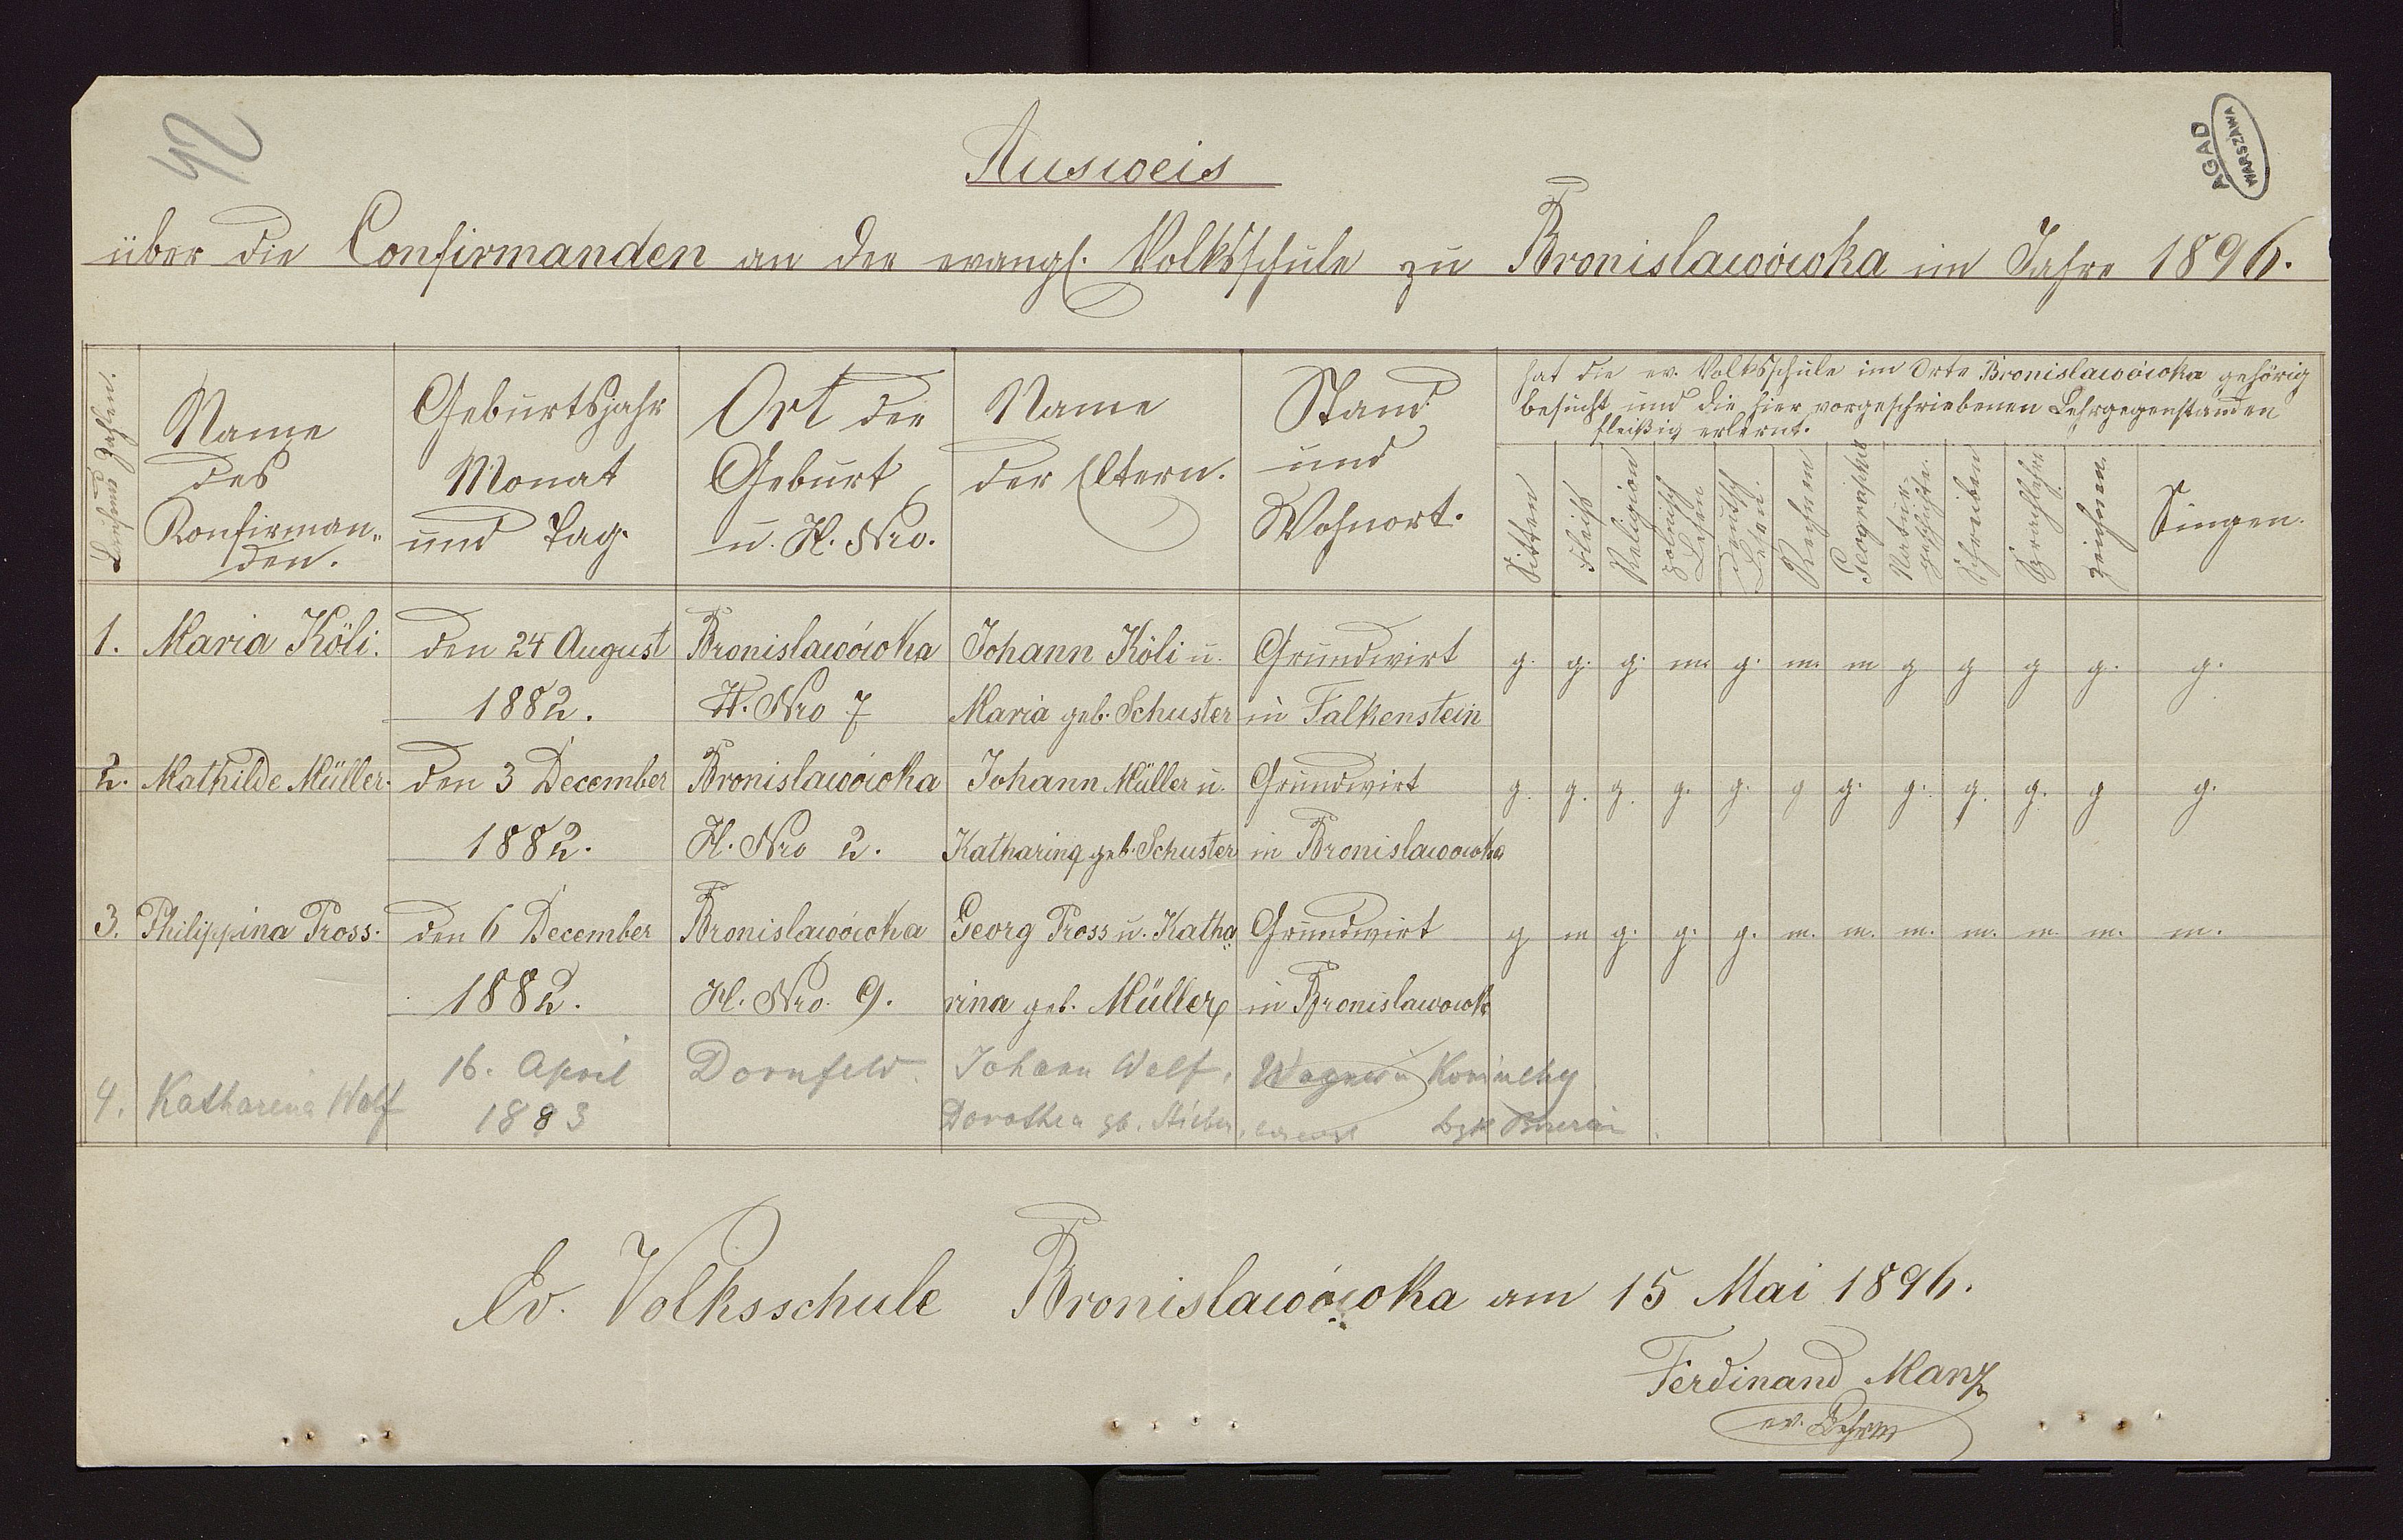 42
AGAD
WARSZAWA
Ausweis
über die Confirmanden an der evangl. Volksschule zu Bronislawówka im Jahre 1896.
Laufende Zahlen.
Name
des
Konfirman-
den.
Geburtsjahr
Monat
und Tag.
Ort der
Geburt
u. H. Nro.
Name
der Eltern.
Stand
und
Wohnort.
hat die ev. Volksschule im Orte Bronislawówka gehörig
besucht und die hier vorgeschriebenen Lehrgegenständen
fleißig erlernt.
Sitten
Fleiß
Religion
polnisch Lesen
deutsch Lesen.
Rechnen
Geographie
Natur-geschichte.
Schreiben
Sprachlehre
zeichnen.
Singen.
1. Maria Köli. den 24 August Bronislawówka Johann Köli u. Grundwirt g. g. g. m. g. m. m g g g g. g.
1882. H. Nro 7 Maria geb. Schuster in Falkenstein
2. Mathilde Müller. den 3 December Bronislawówka Johann Müller u. Grundwirt g. g. g. g. g. g g. g. g. g. g g.
1882. H. Nro 2. Katharina geb. Schuster in Bronislawowka
3. Philippina Pross. den 6 December Bronislawówka Georg Pross u. Katha Grundwirt g m g. g. g. m. m. m. m. m. m. m.
1882. H. Nro. 9. rina geb. Müller in Bronislawowk
16. April Dornfeld. Johann Wolf,
4. Katharena Wolf 1883 Dorothea gb.
Ev. Volksschule Bronislawówka am 15 Mai 1896.
Ferdinand Manz
ev. Lehrer